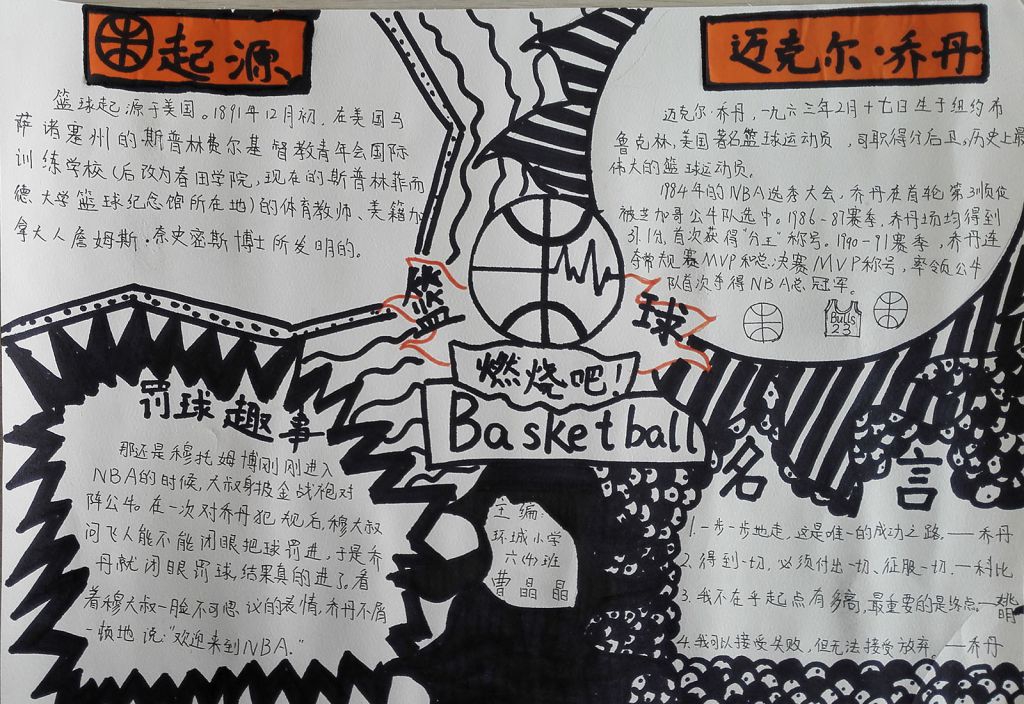 起源
篮球起源于美国。1891年12月初,在美国马
萨诸塞州的斯普林费尔基督教青年会国际
训练学校(后改为春田学院,现在的斯普林菲而
德大学篮球纪念馆所在地)的体育教师、美籍加
拿大人詹姆斯·奈史密斯博士所发明的。
迈克尔·乔丹
迈克尔·乔丹,一九六三年2月十七日生于纽约布
鲁克林,美国著名篮球运动员,司职得分后卫,历史上最
伟大的篮球运动员。
1984年的NBA选秀大会,乔丹在首轮第3顺位
被芝加哥公牛队选中。1986-87赛季,乔丹场均得到
37.1分,首次获得“分王”称号。1990-91赛季,乔丹连
夺常规赛MVP和总决赛MVP称号,率领公牛
队首次夺得NBA总冠军。
Bulls
23
篮
球
燃烧吧!
Basketball
罚球趣事
那还是穆托姆博刚刚进入
NBA的时候,大叔身披金战袍对
阵公牛。在一次对乔丹犯规后,穆大叔
问飞人能不能闭眼把球罚进,于是乔
丹就闭眼罚球,结果真的进了。看
着穆大叔一脸不可思议的表情,乔丹不屑
一顿地说:“欢迎来到NBA.”
主编:
环城小学
六(4)班
曹晶晶
名言
1.一步一步地走,这是唯一的成功之路。——乔丹
2.得到一切,必须付出一切、征服一切。—科比
3.我不在乎起点有多高,最重要的是终点。—姚明
4.我可以接受失败,但无法接受放弃。——乔丹